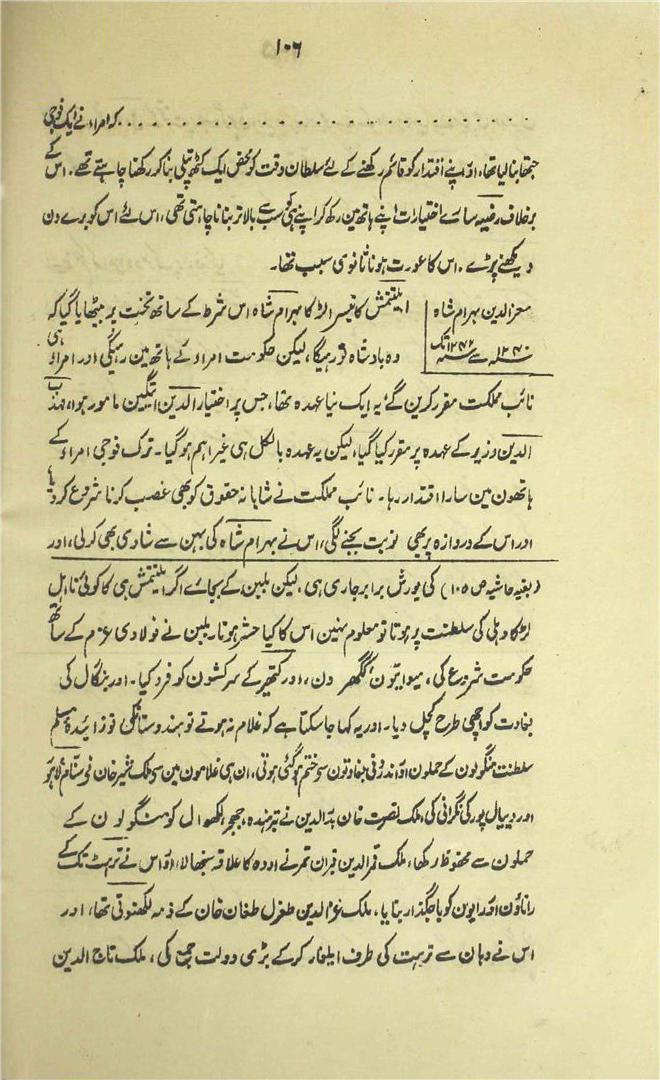 ۱۰۶
. . . . . . . . . . . . . . . . . . . . . . . . . . کہ امراء نے ایک فوجی
جتھا بنا لیا تھا، اور اپنے اقتدار کو قائم رکھنے کے لئے سلطان وقت کو محض ایک کٹھ پتلی بنا کر رکھنا چاہتے تھے۔ اس کے
برخلاف رضیہ سارے اختیارات اپنے ہاتھ مین رکھ کر اپنے ہی کو سب سے بالاتر بنانا چاہتی تھی، اس لئے اس کو برے دن
دیکھنے پڑے۔ اس کا عورت ہونا ثانوی سبب تھا۔
معز الدین بہرام شاہ
۱۲۴۰ء سے ۱۲۴۲ء تک
ایلتتمش کا تیسرا لڑکا بہرام شاہ اس شرط کے ساتھ تخت پر بیٹھایا گیا کہ
وہ بادشاہ تو رہیگا، لیکن حکومت امراء کے ہاتھ مین رہیگی اور امراء ہی
نائب مملکت مقرر کرین گے یہ ایک نیا عہدہ تھا، جس پر اختیار الدین ایتگین مامور ہوا، مہذب
الدین وزیر کے عہدہ پر مقرر کیا گیا، لیکن یہ عہدہ بالکل ہی غیر اہم ہو گیا۔ ترک فوجی امراء کے
ہاتھون مین سارا اقتدار رہا۔ نائب مملکت نے شاہانہ حقوق کو بھی غصب کرنا شروع کر دیا
اور اس کے دروازہ پر بھی نوبت بجنے لگی، اس نے بہرام شاہ کی بہن سے شادی بھی کر لی، اور
(بقیہ حاشیہ ص ۱۰۵) کی یورش برابر جاری ہی، لیکن بلبن کے بجائے اگر ایلتتمش ہی کا کوئی نا اہل
لڑکا دہلی کی سلطنت پر ہوتا تو معلوم نہین اس کا کیا حشر ہوتا، بلبن نے فولادی عزم کے ساتھ
حکومت شروع کی، میواتیون، گکھر ون، اور کتھیر کے سرکشون کو فرد کیا۔ اور بنگال کی
بغاوت کو اچھی طرح کچل دیا۔ اور یہ کہا جا سکتا ہے کہ غلام نہ ہوتے تو ہندوستان کی نوزائیدہ مسلم
سلطنت منگولون کے حملون اور اندرونی بغاوتون سے ختم ہو گئی ہوتی، ان ہی غلامون مین سے ملک شیر خان نے سنام، لاہور
اور دیپال پور کی نگرانی کی، ملک نصرت خان بدر الدین نے تبرہندہ، ججر، لکھوال کو منگولون کے
حملون سے محفوظ رکھا، ملک قمر الدین قیران تمر نے اودہ کا علاقہ سنبھالا، اور اس نے تربت تک کے
راناؤن اور رایون کو باجگذار بنایا، ملک عز الدین طغرل طغان خان کے ذمہ لکھنوتی تھا، اور
اس نے وہان سے تربت کی طرف ایلغار کر کے بڑی دولت جمع کی، ملک تاج الدین